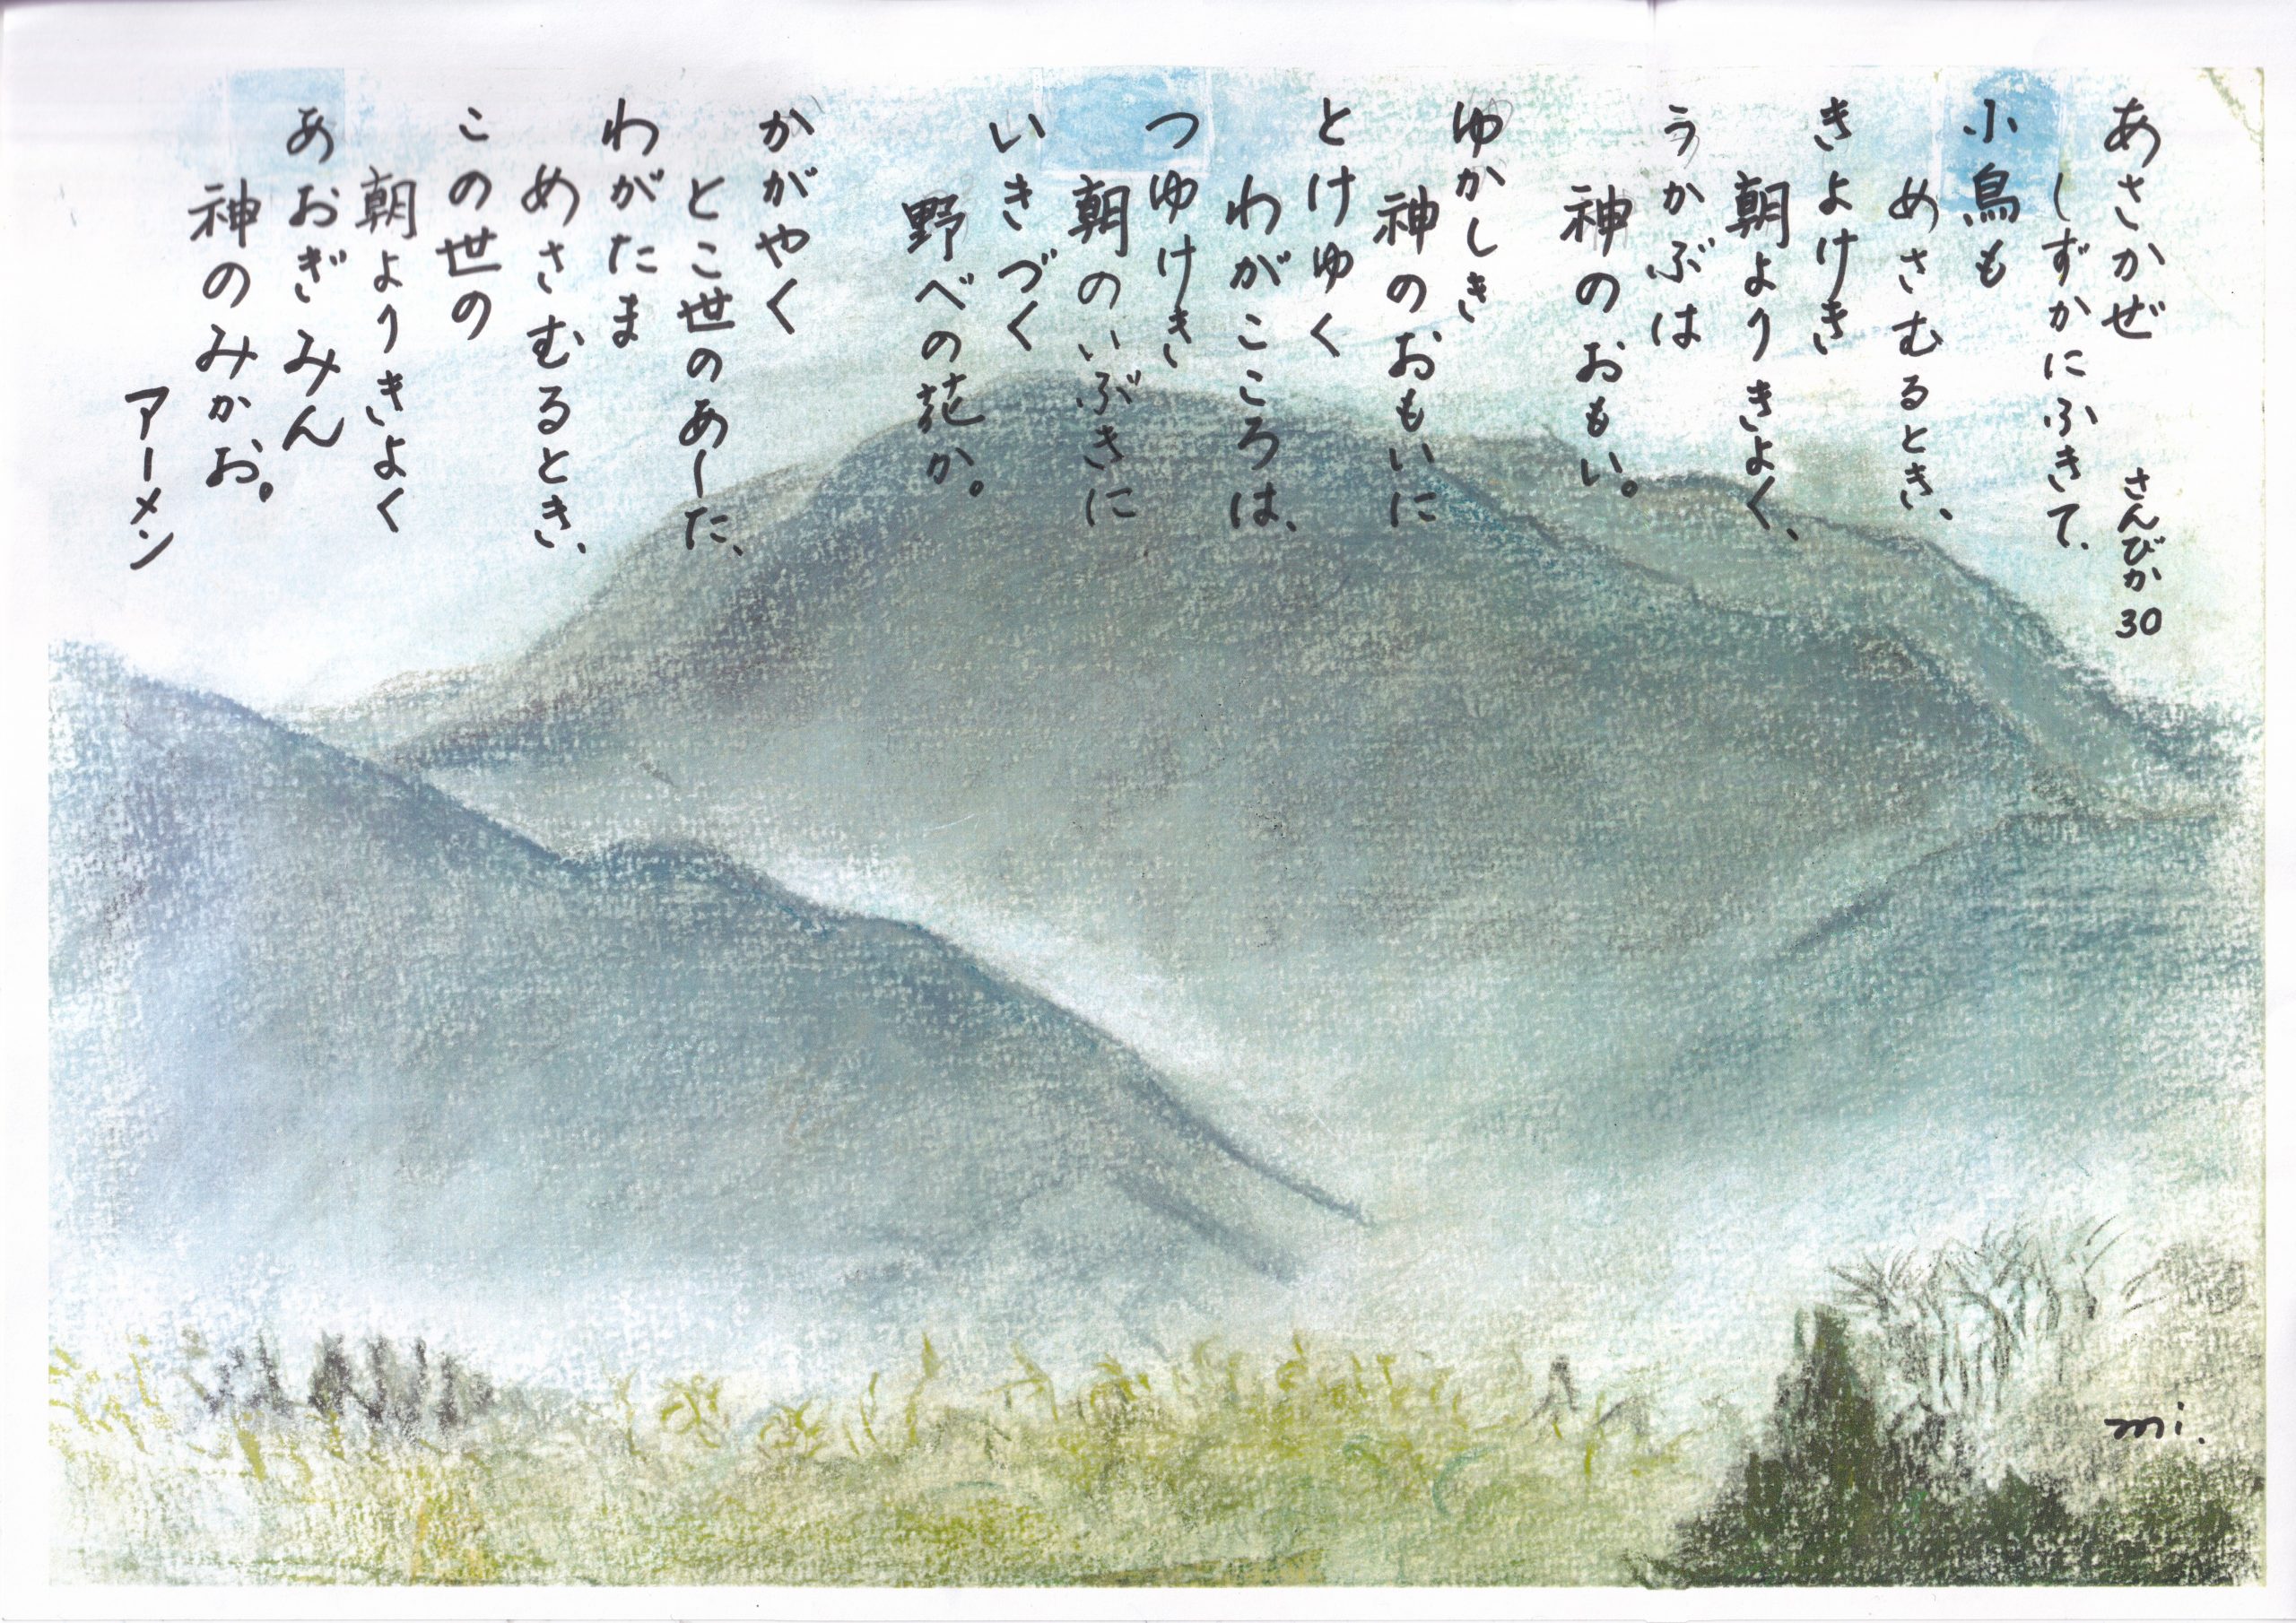 あさかぜ
しずかにふきて、
小鳥も
めさむるとき、
きよけき
朝よりきよく、
うかぶは
神のおもい。
ゆかしき
神のおもいに
とけゆく
わがこころは、
つゆけき
朝のいぶきに
いきづく
野べの花か。
かがやく
とこ世のあした、
わがたま
めさむるとき、
この世の
朝よりきよく
あおぎみん
神のみかお。
アーメン
さんびか30
mi.